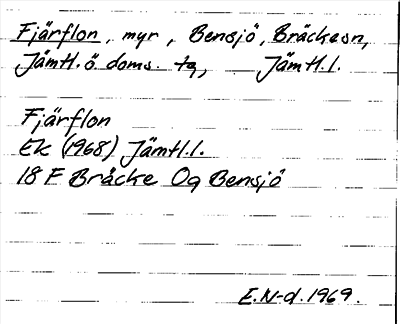 Fjärflon, myr, Bensjö, Bräckesn,
Jämtl. ö doms. tg, Jämtl.l.
Fjärflon
Ek (1968) Jämtl.l.
18 F Bräcke Og Bensjö
E.N-d. 1969.